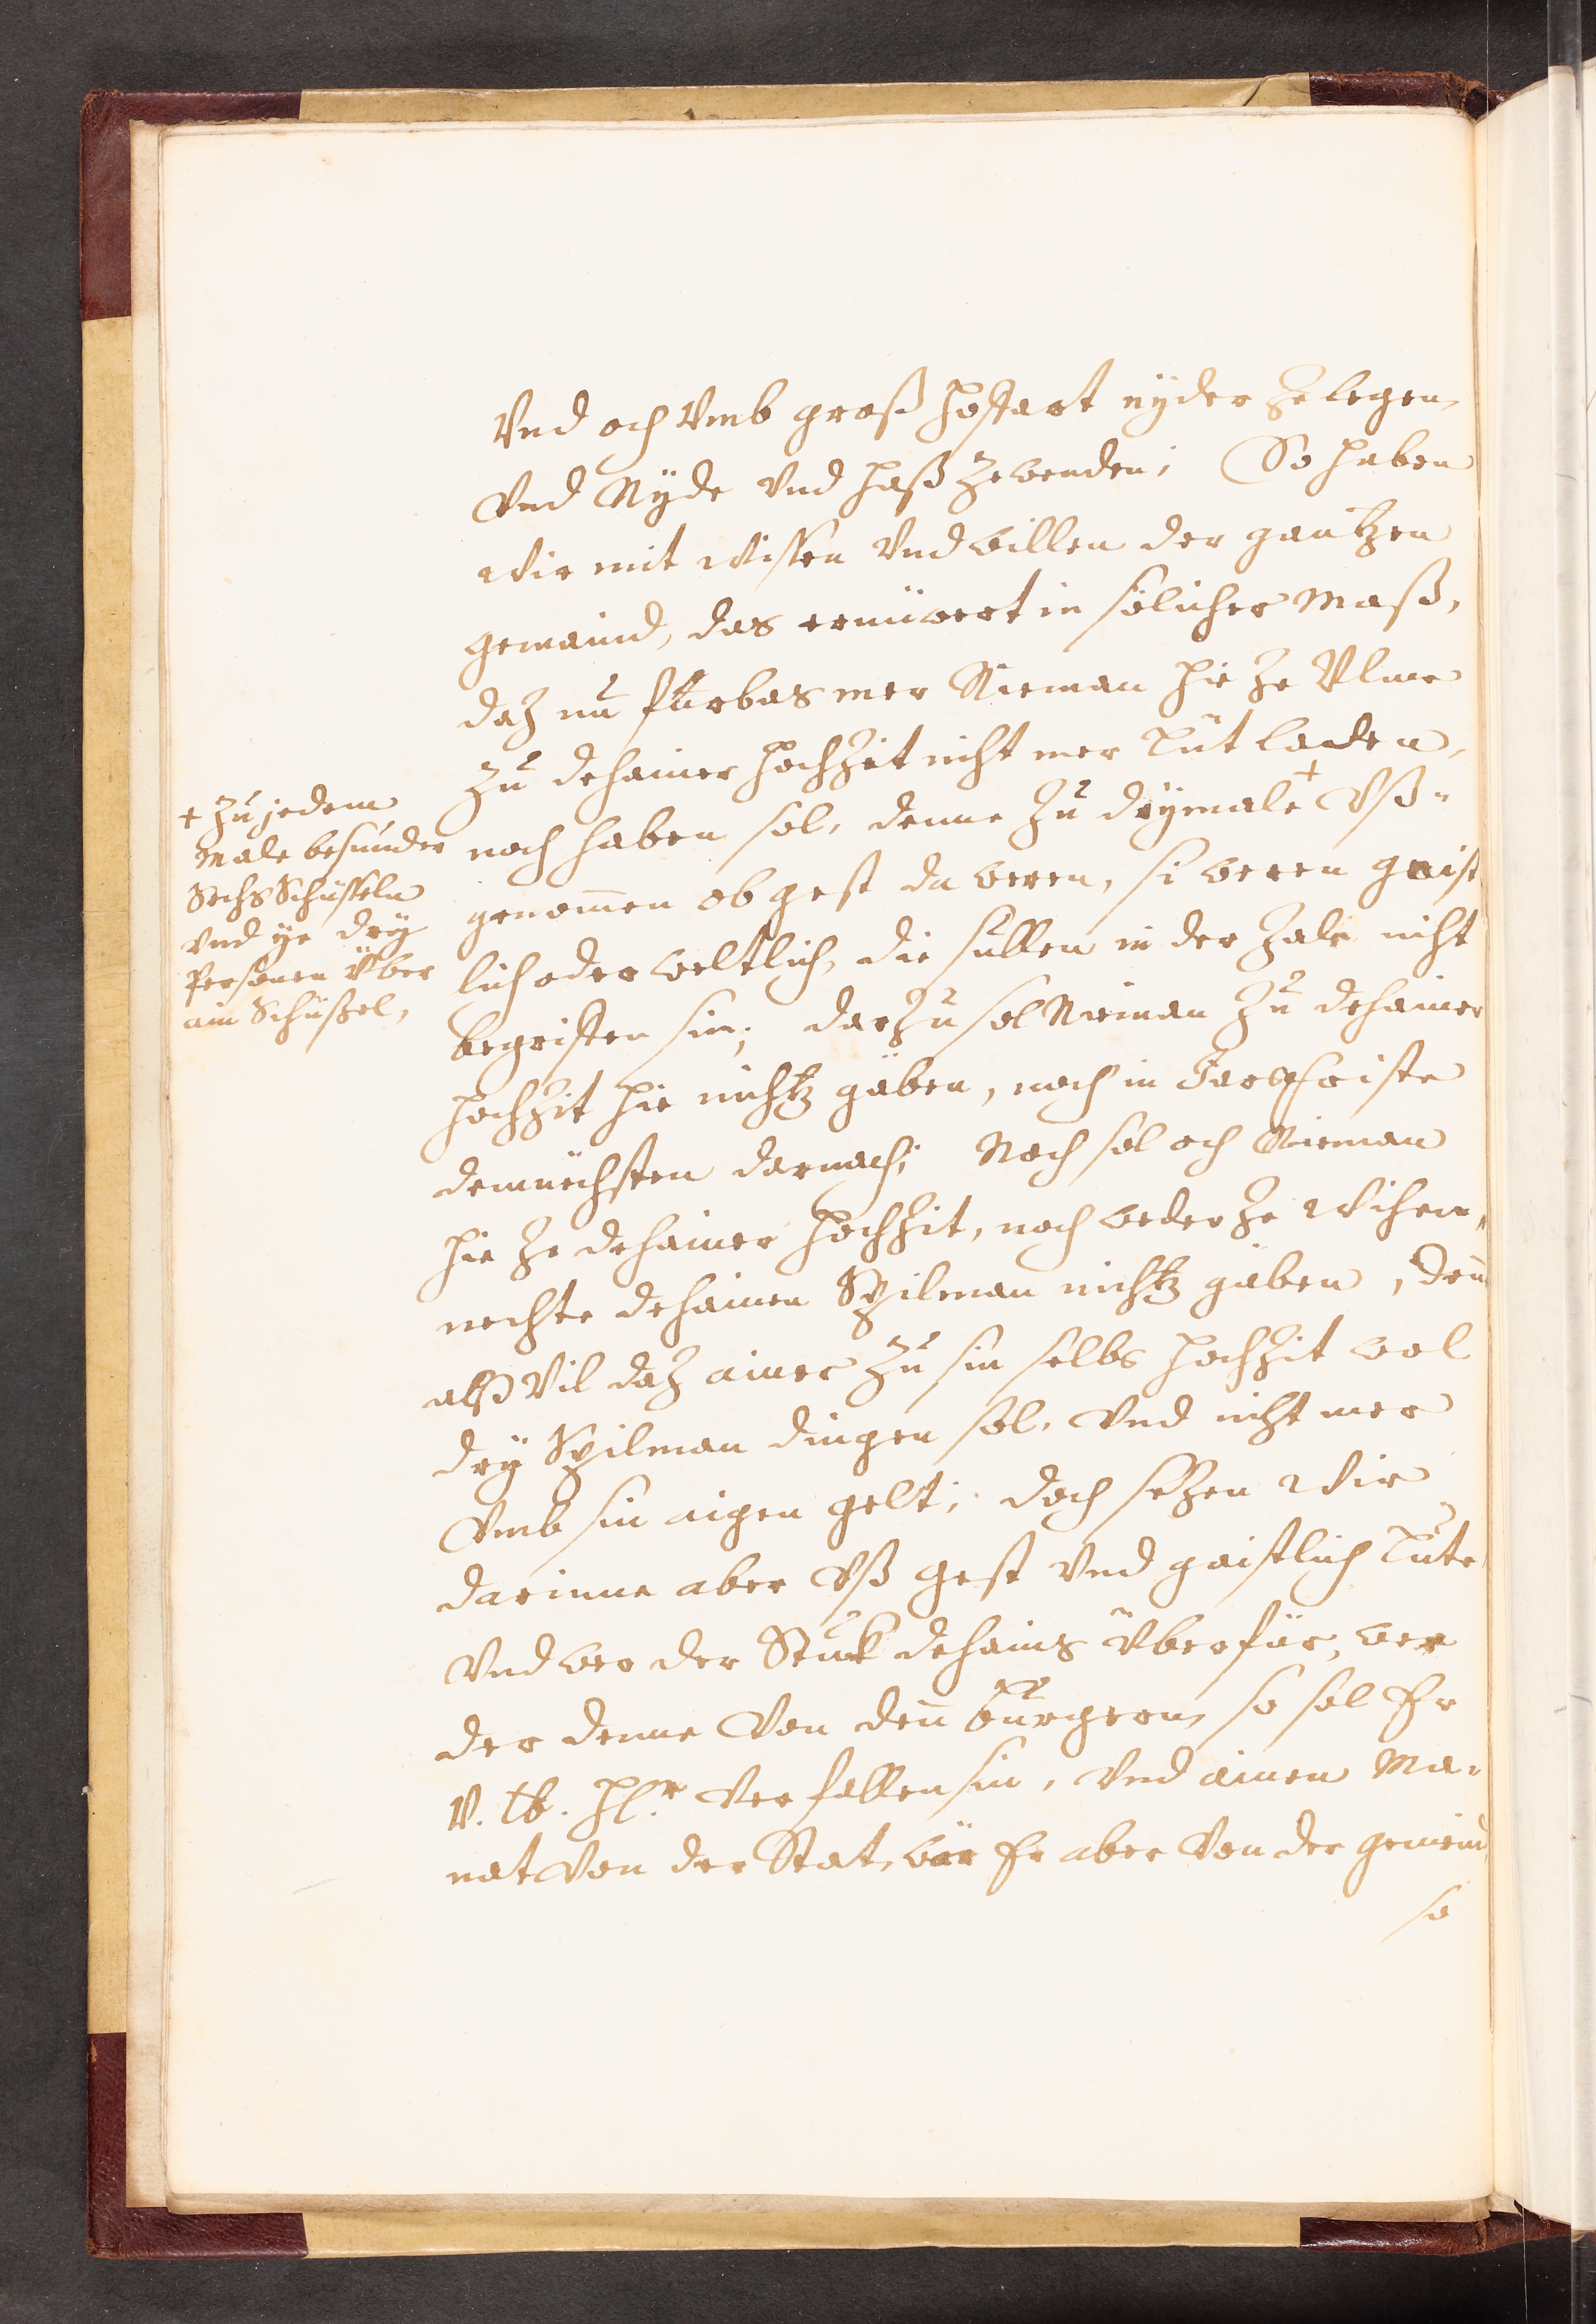 Vnd och Vmb groß hoffart nyder Zelegen
Vnd Nyde Vnd haß Zewenden; So haben
wir mit wissen Vnd willen der gantzen
gemaind, das ernüwert in sölicher Maß,
daz nu fürbas mer Nieman hie Ze Vlme
Zu dehainer hochZeit nicht mer Lüt laden,
noch haben sol, denne Zu drymale + Vß-
genommen ob gest da weren, si weren gaist
lich oder weltlich, die süllen in der Zale nicht
begriffen sin; darZu sol Nieman Zu dehainer
hochZit hie nichtz gäben, noch in Jarsfriste
demnächsten darnach; Noch sol och Nieman
hie Ze dehainer hochZit, noch weder Ze Wihen-
nechte dehainen Spilman nichtz gäben, denn
alßo Vil daz ainer Zu sin selbs hochZit wol
dry Spilman dingen sol, Vnd nicht mer
Vmb sin aigen gelt; doch setzen Wir
darinne aber Vß gest Vnd gaistlich Lüte
Vnd wer der Stuk dehains Überfür, wer
der denne Von denn burgern, so sol Er
V. lb. hlr. Verfallen sin, Vnd ainen Ma-
nat Von der Stat, wär Er aber Von der gemaind
so
+ Zu jedem
Male besunder
Sechs Schüsseln
Vnd ye dry
Personen Über
ain Schüßel,